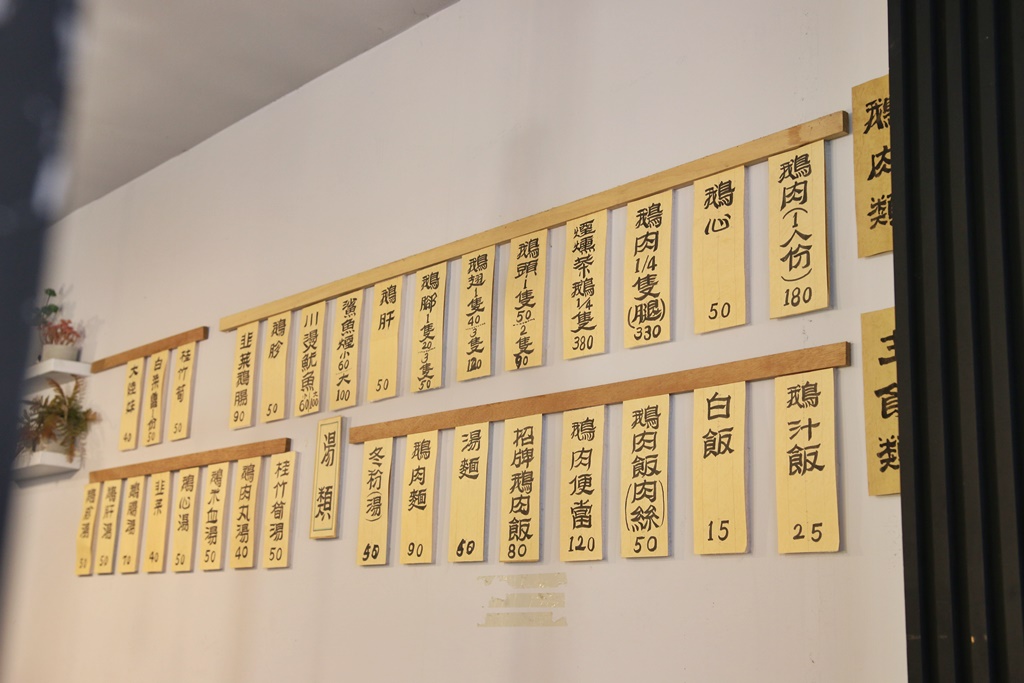 鵝肉類
鵝肉(1人份) 180
鵝心 50
鵝肉1/4隻(腿) 330
煙燻茶鵝1/4隻 380
鵝頭1隻50 2隻90
鵝翅1隻40 3隻120
鵝腳1隻20 3隻50
鵝肝 50
鯊魚煙小60大100
川燙魷魚 60 大100
鵝胗 50
韭菜鵝腸 90
桂竹筍 50
主食類
鵝汁飯 25
白飯 15
鵝肉飯(肉絲) 50
鵝肉便當 120
招牌鵝肉飯 80
湯麵 50
鵝肉麵 90
冬粉(湯) 50
湯類
桂竹筍湯 50
鵝肉丸湯 40
鵝米血湯 50
鵝心湯 50
韭菜 40
鵝腸湯 70
鵝肝湯 50